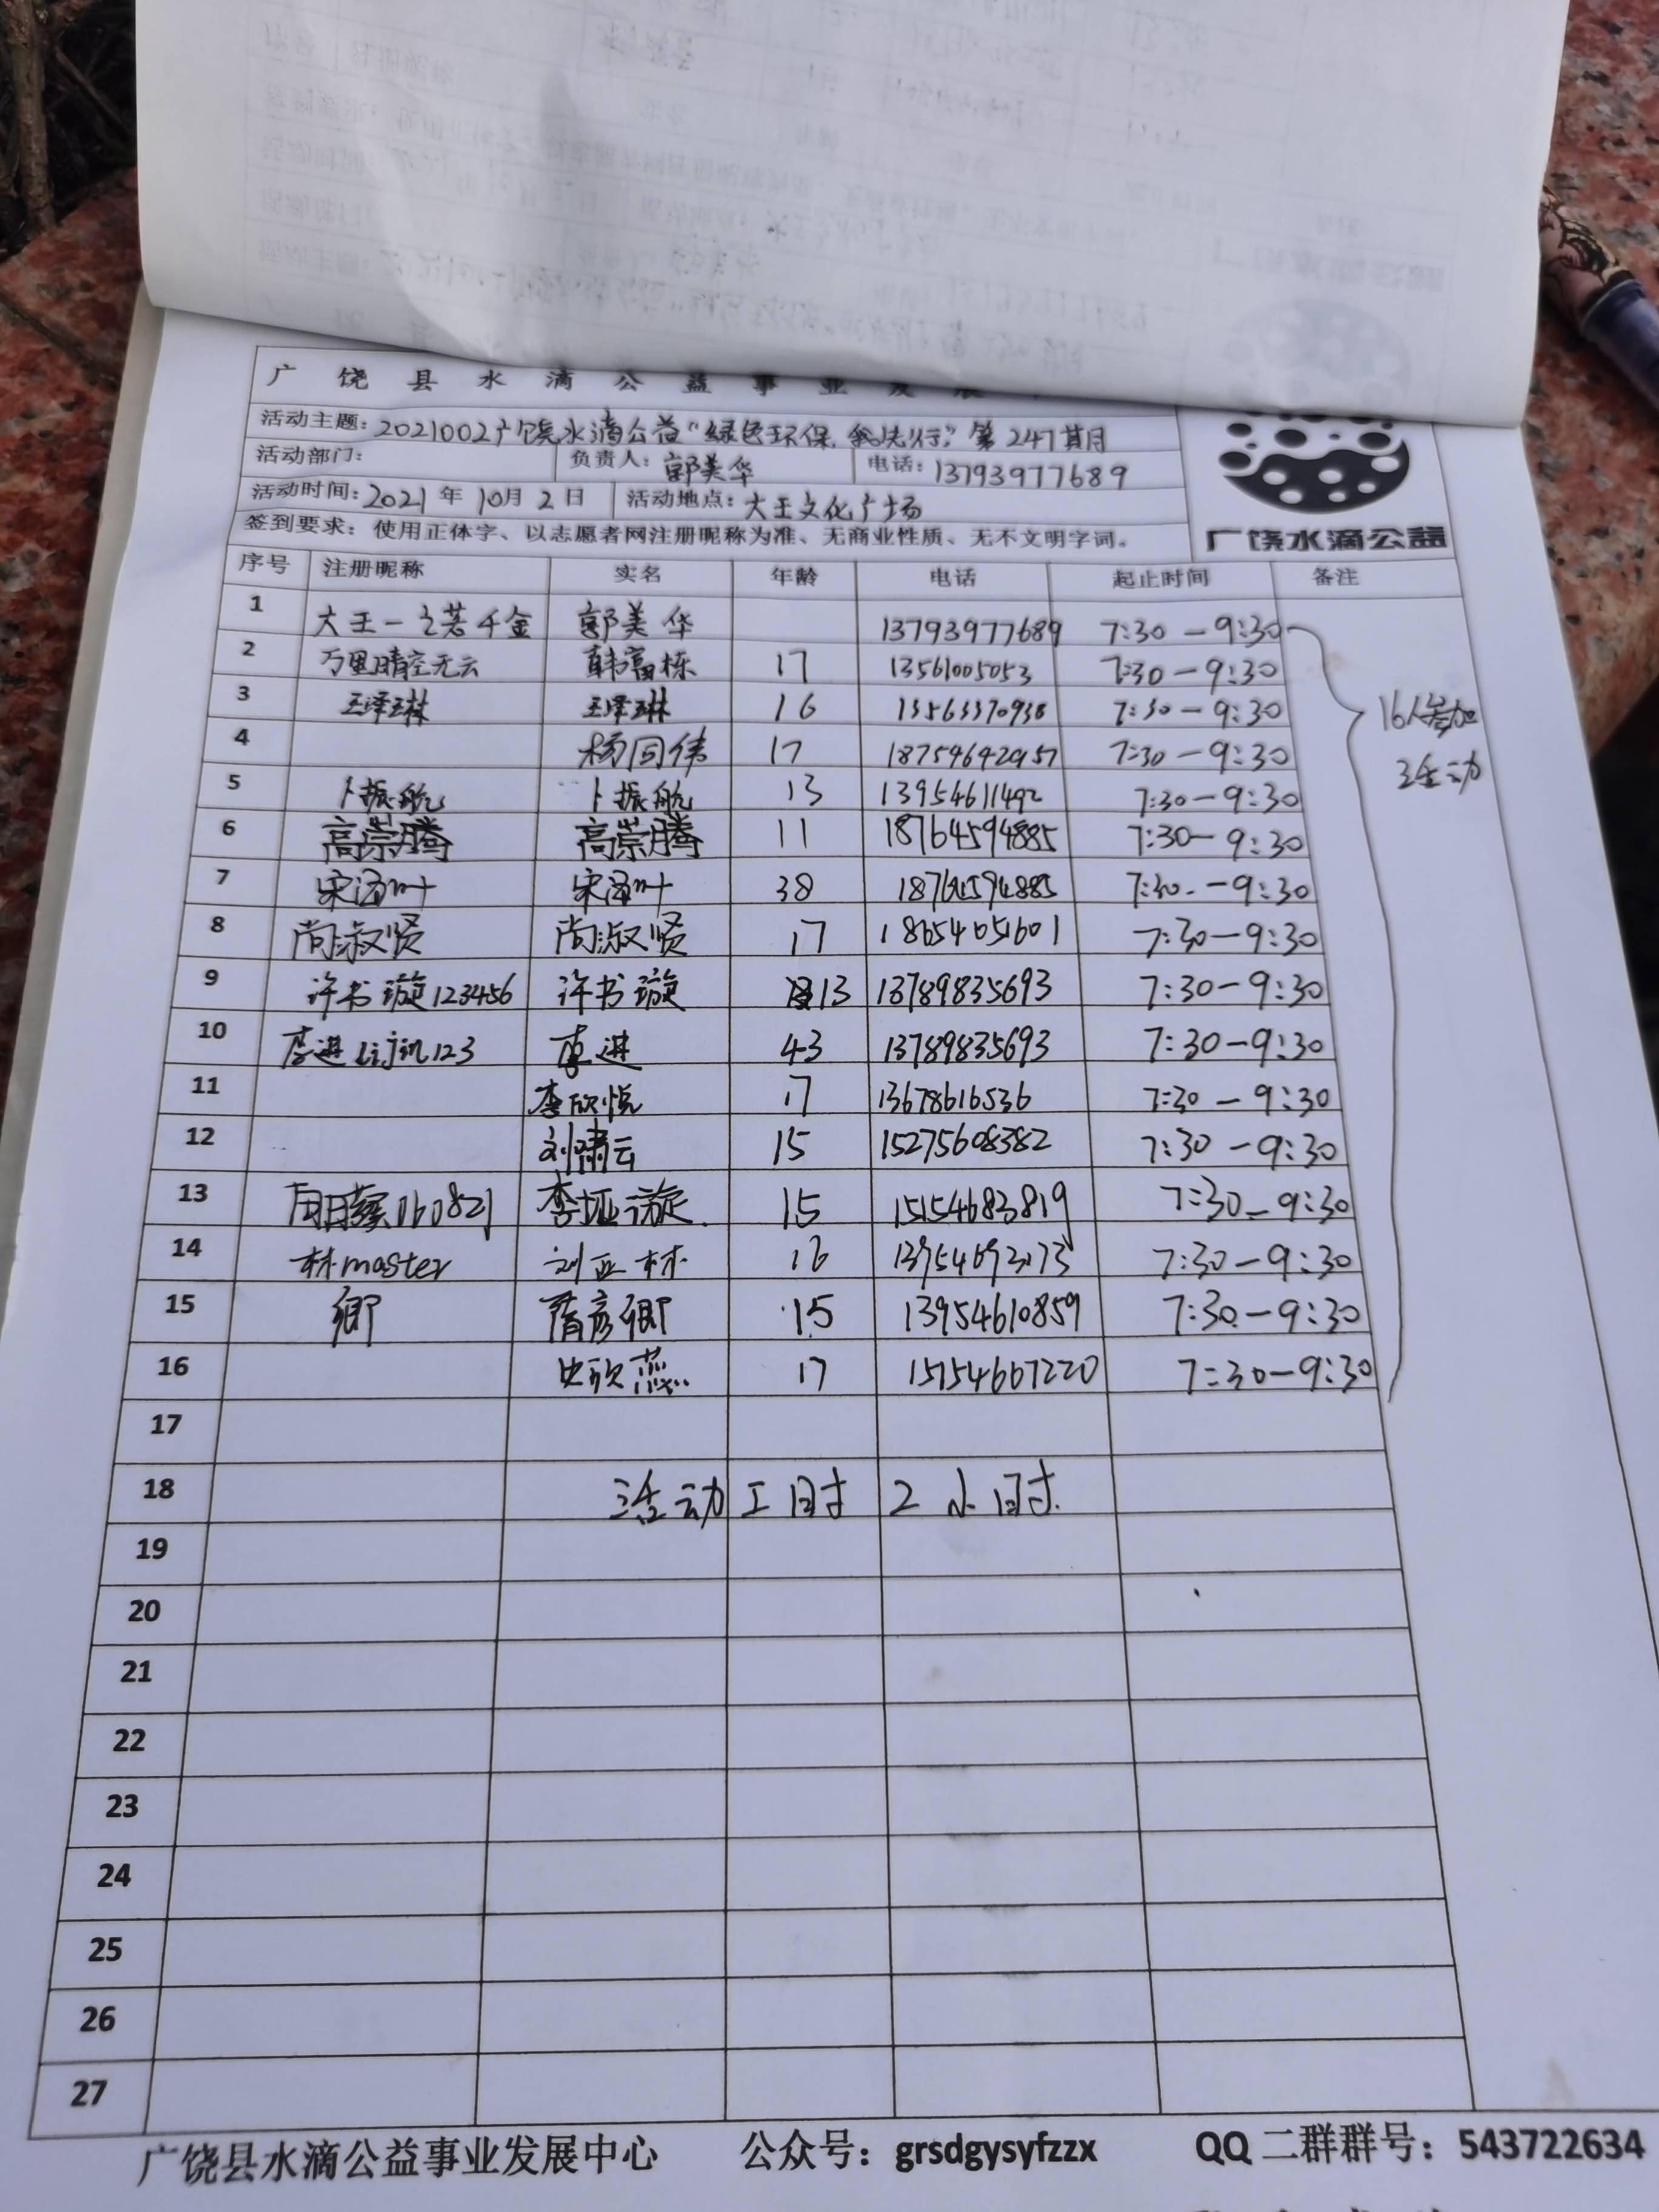 广饶县水滴公益事业发展
活动主题：2021002广饶水滴公益“绿色环保，我先行”第247期
活动部门： 负责人：郭美华 电话：13793977689
活动时间：2021年10月2日 活动地点：大王文化广场
签到要求：使用正体字、以志愿者网注册昵称为准、无商业性质、无不文明字词。
广饶水滴公益
序号 注册昵称 实名 年龄 电话 起止时间 备注
1 大王一之若千金 郭美华 13793977689 7:30-9:30
2 万里晴空无云 韩富栋 17 13561005053 7:30-9:30
3 王泽琳 王泽琳 16 13563370938 7:30-9:30
16人参加
4 杨同伟 17 18754642957 7:30-9:30
活动
5 卜振航 卜振航 13 13954611492 7:30-9:30
6 高崇腾 高崇腾 11 18764594885 7:30-9:30
7 宋泽叶 宋泽叶 38 18764594885 7:30-9:30
8 尚淑贤 尚淑贤 17 18654051601 7:30-9:30
9 许书璇123456 许书璇 13 13789835693 7:30-9:30
10 李进 43 13789835693 7:30-9:30
11 李欣悦 17 13678616536 7:30-9:30
12 刘啸云 15 15275608382 7:30-9:30
13 李垭璇 15 15154683819 7:30-9:30
14 林master 刘亚林 16 13954693173 7:30-9:30
15 卿 隋彦卿 15 13954610859 7:30-9:30
16 史欣燕 17 15154607220 7:30-9:30
17
18 活动工时 2小时.
19
20
21
22
23
24
25
26
27
广饶县水滴公益事业发展中心 公众号：grsdgysyfzzx QQ二群群号：543722634